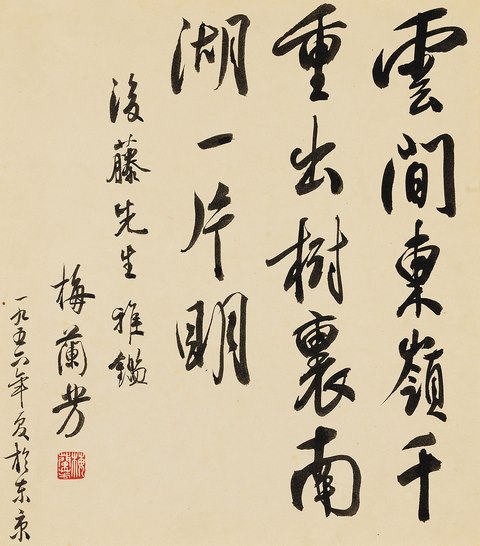 雲間東嶺千
重出樹裏南
湖一片明
後藤先生雅鑑
梅蘭芳
一九五六年夏於东京